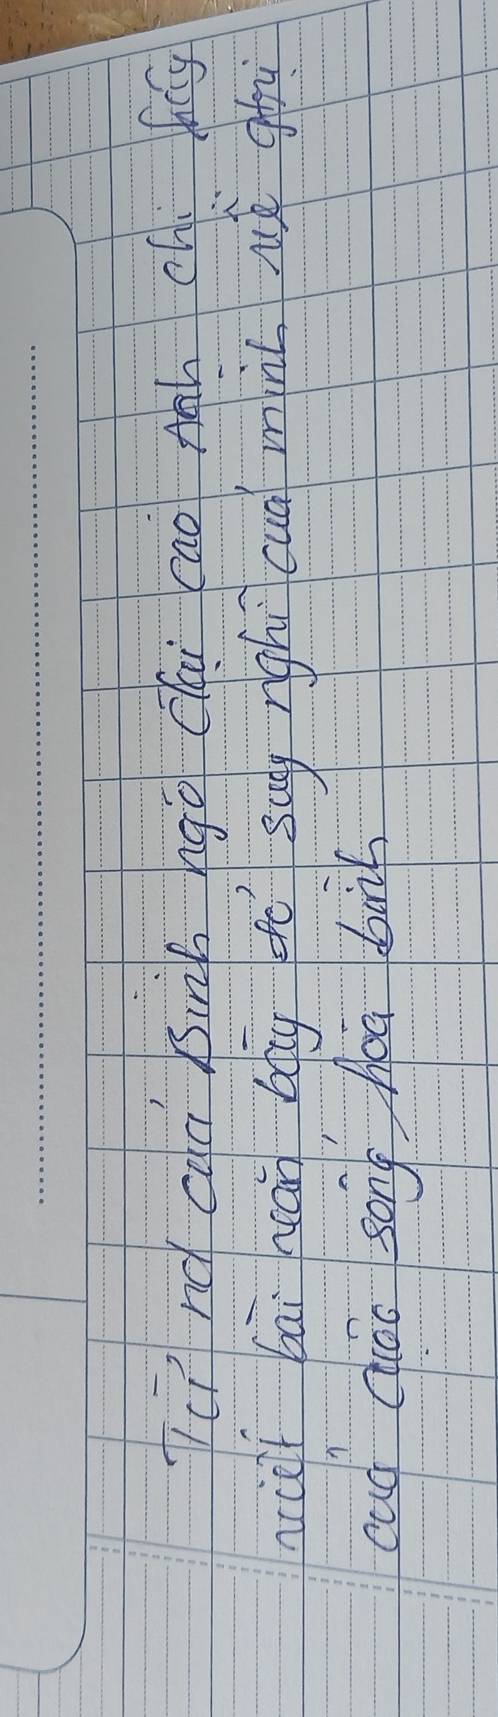 Từ nd của Bình ngô đại cáo Anh chị hãy
viết bài văn bày tỏ suy nghĩ của mình về ghi
của cuộc sống hòa bình